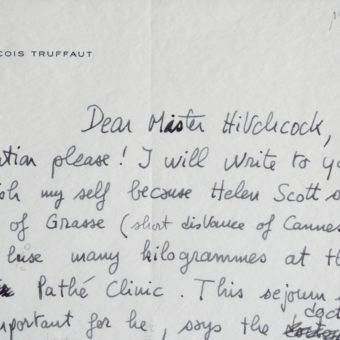 COIS TRUFFAUT
Dear Mister Hitchcock,
tion please! I will write to yo
sh my self because Helen Scott
of Grasse (short distance of Cannes
lose many kilogrammes at th
Pathé Clinic. This sejourn
doct
mportant for he, says the